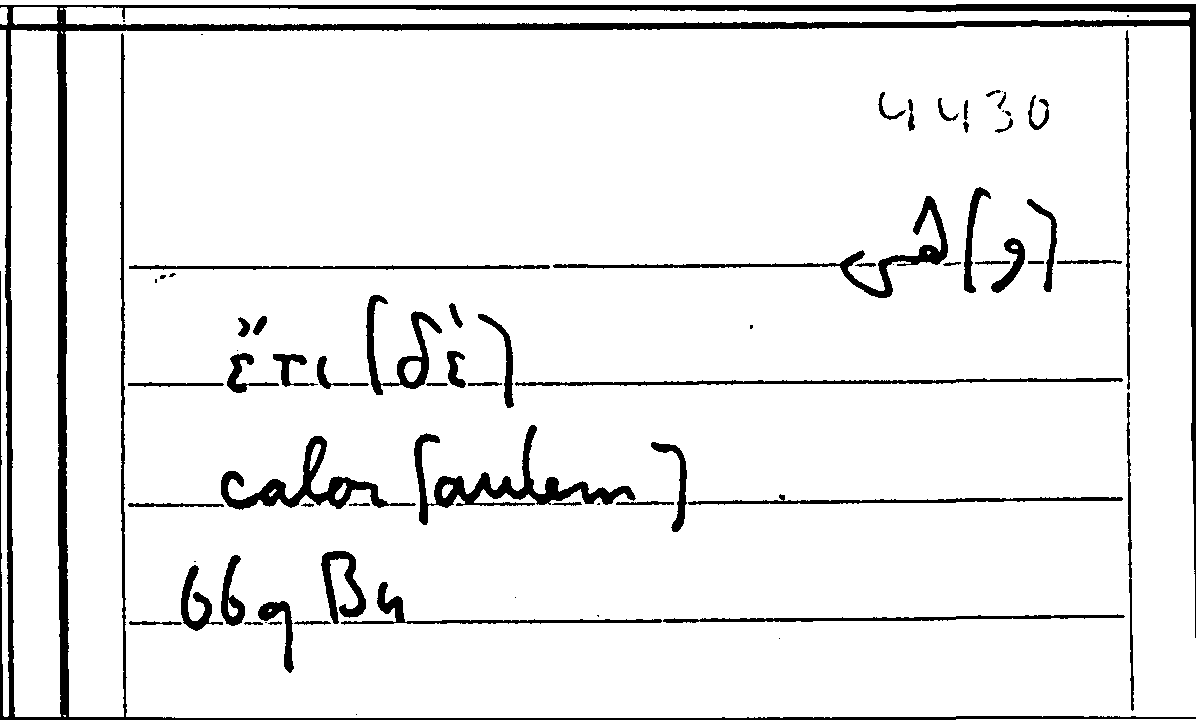 4430
(و)
ἔτι (δέ)
calor (autem)
669 B4